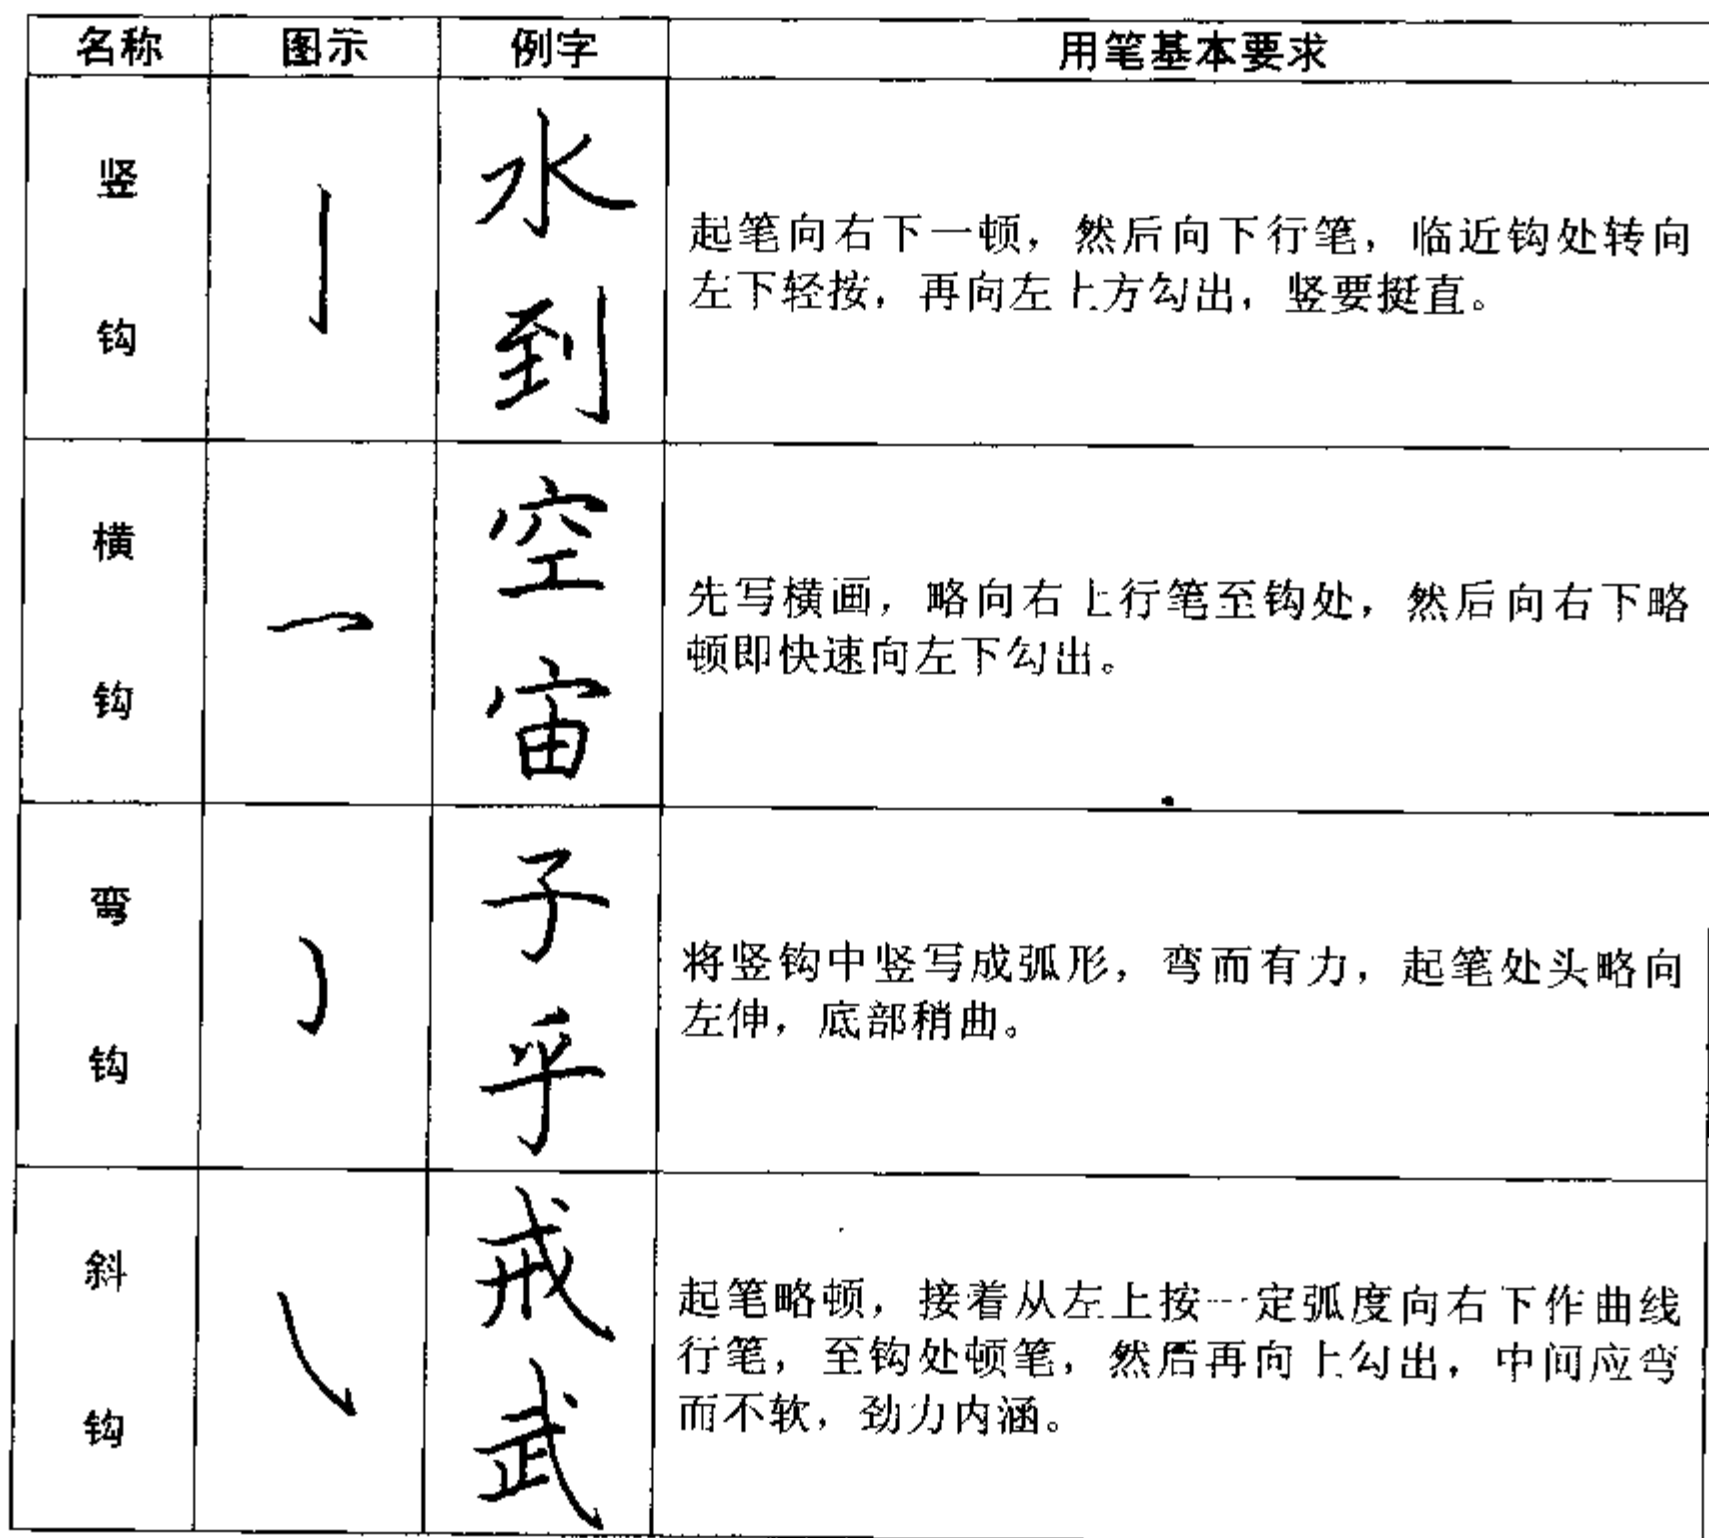 名称 图示 例字 用笔基本要求
竖钩
水
到
起笔向右下一顿，然后向下行笔，临近钩处转向
左下轻按，再向左上方勾出，竖要挺直。
横钩
空
宙
先写横画，略向右上行笔至钩处，然后向右下略
顿即快速向左下勾出。
弯钩
子
乎
将竖钩中竖写成弧形，弯而有力，起笔处头略向
左伸，底部稍曲。
斜钩
戒
武
起笔略顿，接着从左上按一定弧度向右下作曲线
行笔，至钩处顿笔，然后再向上勾出，中间应弯
而不软，劲力内涵。